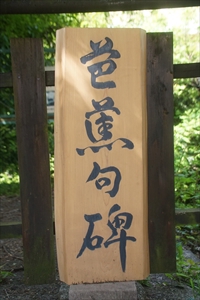 芭蕉句碑